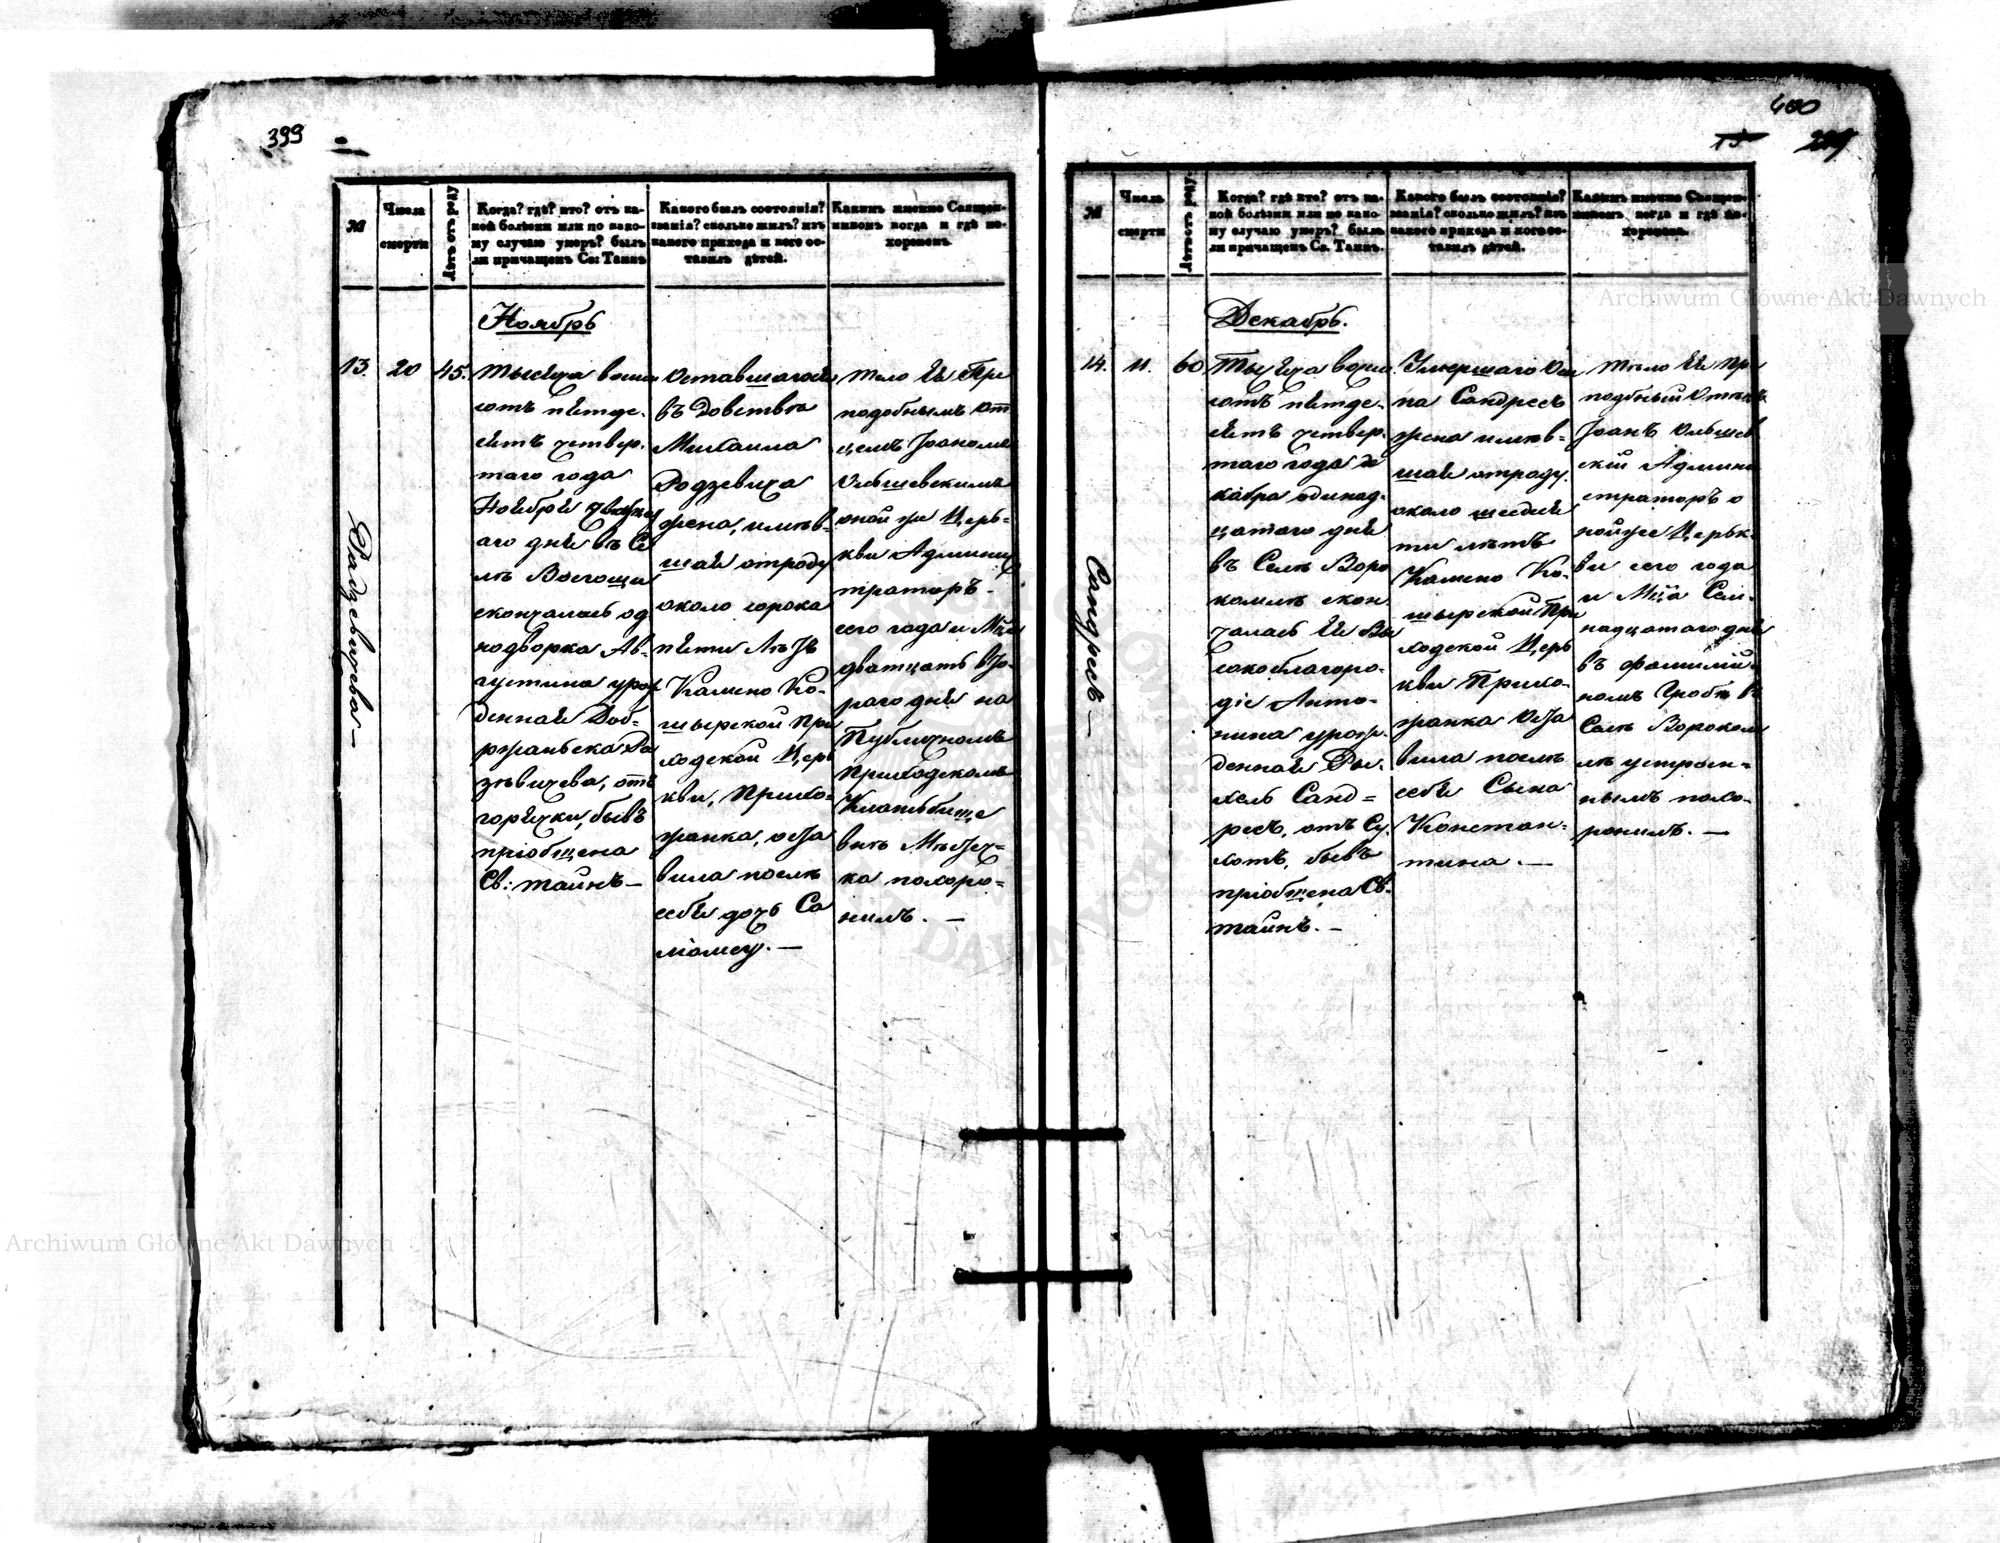 399
№
Числа
смерти
Лѣтъ отъ роду
Когда? гдѣ? кто? отъ ка-
кой болѣзни или по како-
му случаю умеръ? былъ
ли причащенъ Св: Таинъ
Какого былъ состоянія?
званія? сколько жилъ? изъ
какого прихода и кого ос-
тавилъ дѣтей.
Какимъ именно Священ-
никомъ когда и гдѣ по-
хороненъ.
Ноябрь
13.
20
45.
Радзевичева —
Тысяча восем
сотъ пятде-
сятъ четвер-
таго года
Ноября
аго дня въ Се
лѣ
скончалась од
нодворка Ав-
густина урож
денная Доб-
ржаньска Ра
зѣвичева, отъ
горячки, бывъ
пріобщена
Св: таинъ —
Оставшагося
въ вдовствѣ
Михаила
Родзевича
жена, имѣв-
шая отроду
около сорока
пяти Лѣтъ
Камено Ко-
шырской При
ходской Церь
кви, Прихо-
жанка, оста
вила послѣ
себя дочь Са
ломею. —
Тело Ея Пре
подобнымъ От
цемъ Іоаномъ
Ольшевскимъ
оной же Церь-
кви Админис
траторъ -
сего года и Мца
дватцать вто-
раго дня на
Публичномъ
Приходскомъ
Кладьбище
вить Мѣстеч-
ка похоро-
нилъ. —
400
15
№
Числа
смерти
Лѣтъ отъ роду.
Когда? гдѣ кто? отъ ка-
кой болѣзни или по како-
му случаю умеръ? былъ
ли причащенъ Св. Таинъ.
Какого былъ состоянія?
званія? сколько жилъ? изъ
какого прихода и кого ос-
тавилъ дѣтей.
Какимъ именно Священ-
никомъ когда и гдѣ по-
хороненъ.
Декабрь.
14.
11.
60
Сандресъ —
Тысяча восем
сотъ пятде-
сятъ четвер-
таго года де
кабра одинад-
цатаго дня
въ Селѣ Воро
комлѣ скон-
чалась Ея Вы
сокоблагоро-
діе Анто-
нина урож-
денная Ры-
хель Санд=
ресъ, отъ Су-
хотъ, бывъ
пріобщена Св.
таинъ. —
Умершаго Оси
па Сандресъ
жена имѣв=
шая отроду
около шесдся
ти лѣтъ
Камено Ко-
шырской При
ходской Церь
кви Прихо-
жанка Оста
вила послѣ
себя Сына
Констан-
тина. —
Тѣло Ея Пре
подбный Отецъ
Іоанъ Ольшев
скій Админи
страторъ о
нойже Церьк-
ви сего года
и Мца Сем-
надцатаго дня
въ фамилій-
номъ Гробѣ въ
Селѣ Вороком
лѣ устроен=
нымъ похо-
ронилъ. —
Archiwum Główne Akt Dawnych
Archiwum Główne Akt Dawnych